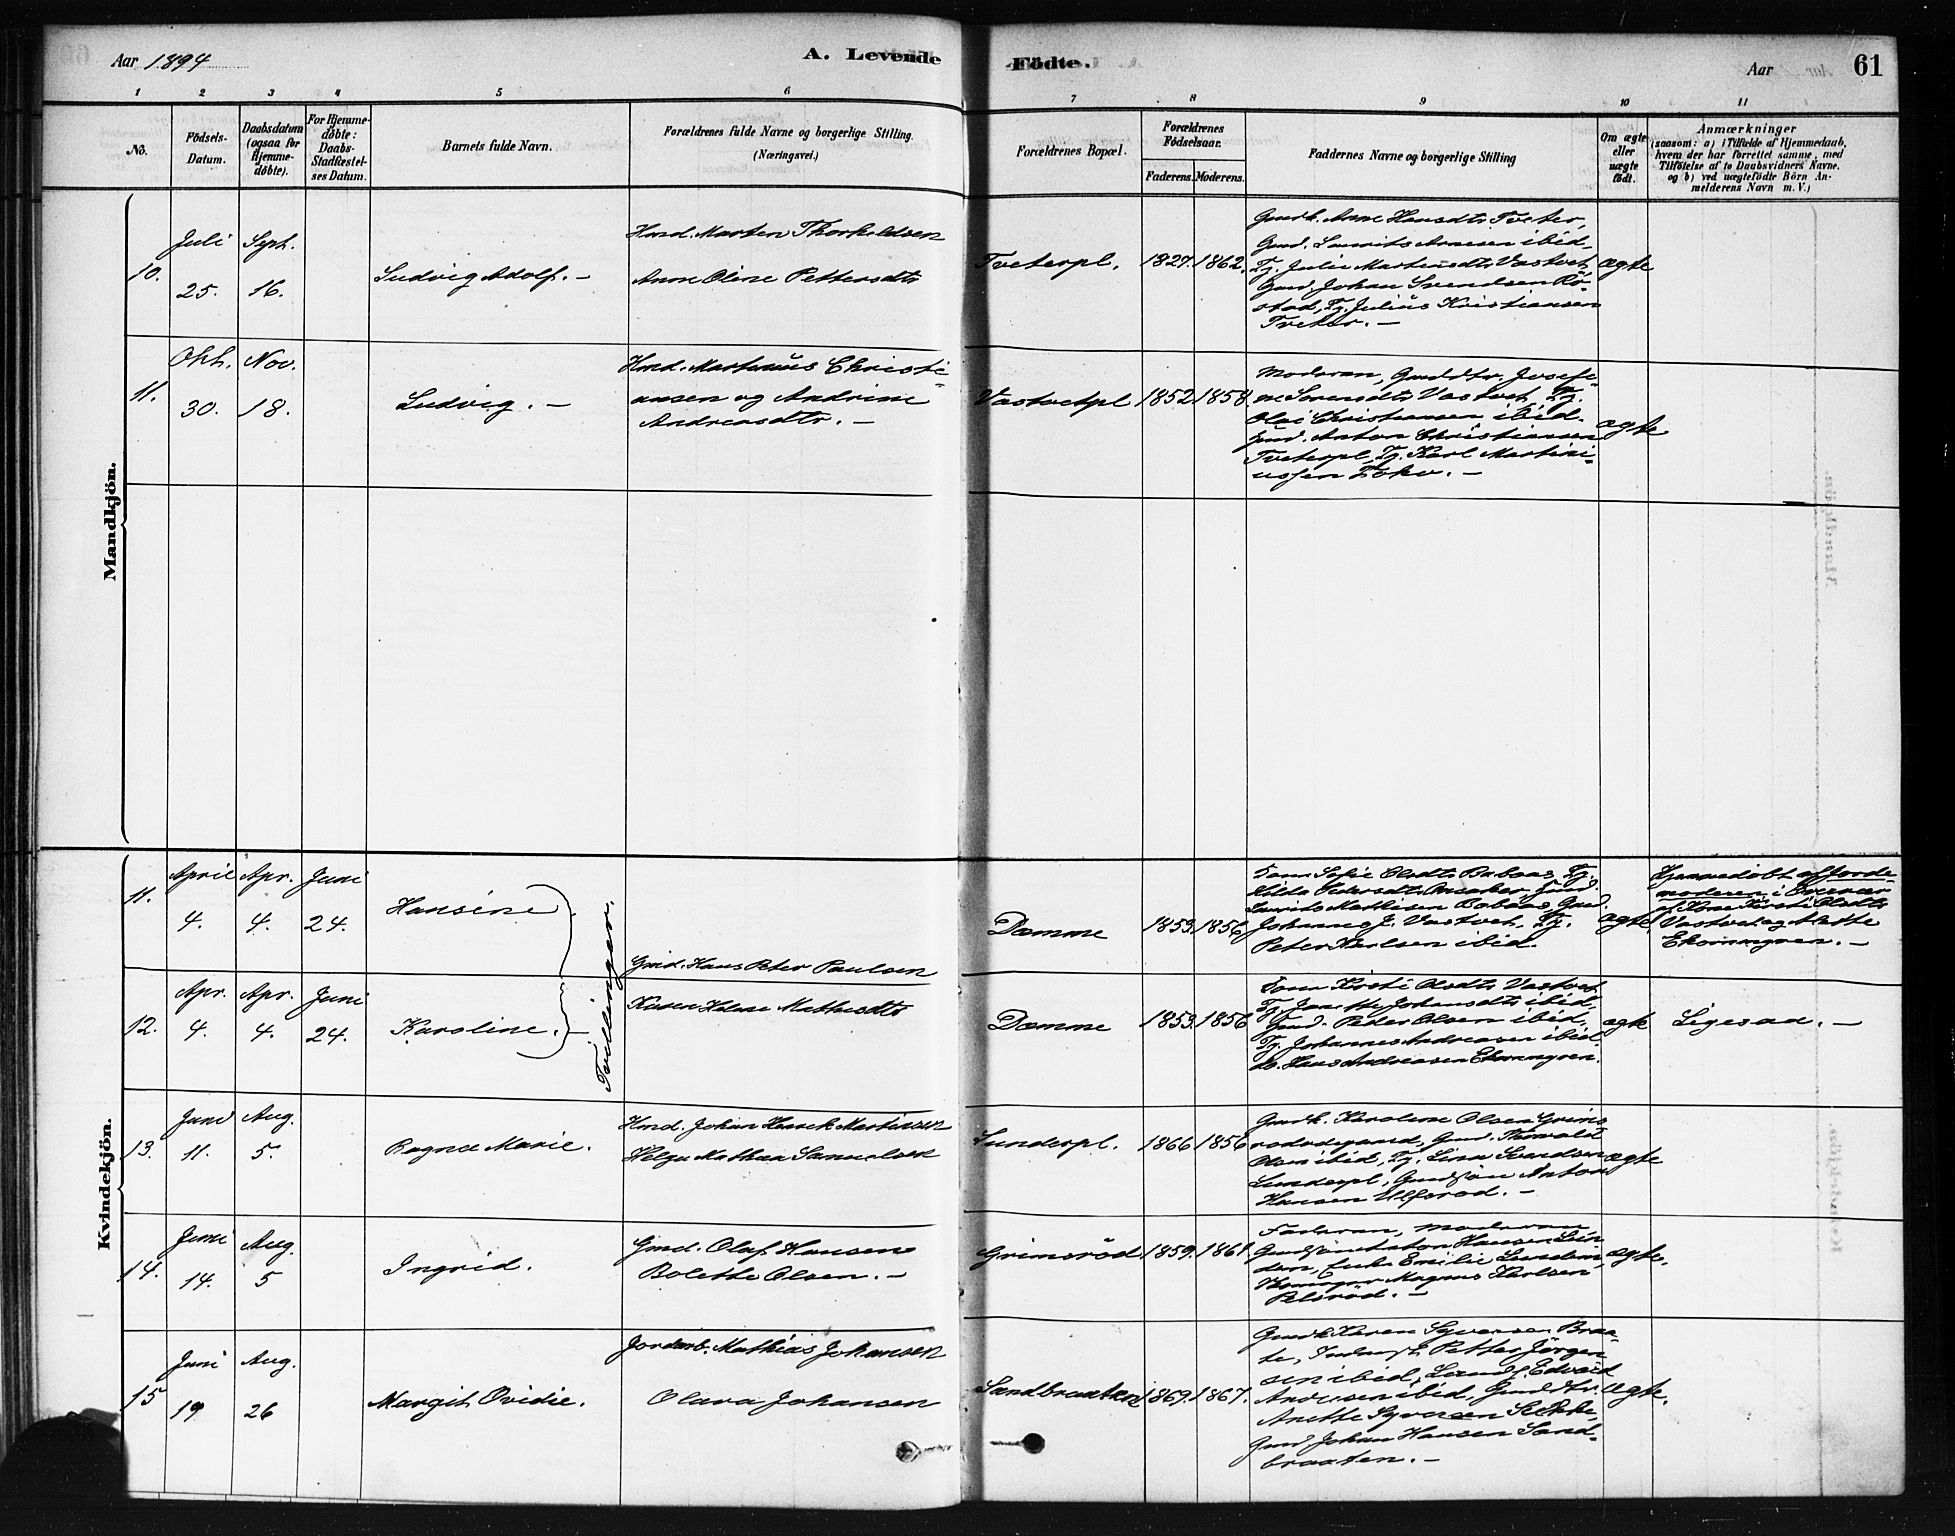 Aar 1894
A. Levende
Födte.
Aar
61
1 2 3 4 5 6 7 8 9 10 11
No.
Födsels-
Datum.
Daabsdatum
(ogsaa for
Hjemme-
döbte).
For Hjemme-
döbte:
Daabs-
Stadfæstel-
ses Datum.
Barnets fulde Navn.
Forældrenes fulde Navne og borgerlige Stilling.
(Næringsvei.)
Forældrenes Bopæl.
Forældrenes
Födselsaar.
Faderens. Moderens.
Faddernes Navne og borgerlige Stilling
Om ægte
eller
uægte
födt.
Anmærkninger
(saasom: a) i Tilfælde af Hjemmedaab,
hvem der har forrettet samme, med
Tilföielse af to Daabsvidners Navne,
og b) ved uægtefödte Börn An-
melderens Navn m. V.)
Mandkjön.
10.
Juli
25.
Sept.
16.
Ludvig Adolf. -
Hmd. Marten Thorkeldsen
Anne Oline Pettersdtr
Tveterpl.
1827. 1862.
Gmdk. Anne Hansdtr Tveter,
Gmd. Laurits Arnesen ibid,
Tj. Julie Martensdtr Vastvet,
Gmd. Johan Svendsen Rö-
stad, Tj. Julius Kristiansen
Tveter. -
ægte
11.
Okt.
30.
Nov.
18.
Ludvig. -
Hmd. Martinius Christi-
ansen og Andrine
Andreasdtr. -
Vastvetpl
1852 1858
Moderen, Gmddtr. Josefi-
ne Sörensdtr Vastvet, Tj.
Olai Christiansen ibid.
Gmd. Anton Christiansen
Tveterpl, Tj. Karl Martini-
ussen
ægte
Kvindekjön.
11.
April
4.
Apr.
4.
Juni
24.
Hansine
Tvillinger.
Gmd. Hans Peter Paulsen
Damme
1853. 1856
Sofie Olsdtr
Hilda Pedersdtr
Laurits Mathisen
Johannes J. Vastvet, Tj.
Peter Karlsen ibid.
ægte
Hjemmedöbt af Jorde-
moderen i Overvær
af Kone Kirsti Olsdtr
Vastvet og Anette
Ekornmyren. -
12.
Apr.
4.
Apr.
4.
Juni
24.
Karoline. -
Karen Helene Mathisdtr
Damme
1853. 1856
Kirsti Olsdtr Vastvet
Tj. Johansdtr ibid
Gmd. Peder Olsen ibid,
Tj. Johannes Andreasen ibid.
Hans Andreasen Ekornmyren.
ægte
Ligesaa. -
13.
Juni
11.
Aug.
5.
Ragna Marie.
Hmd. Johan Henrik Martinsen
Helga Mathea Samuelsen
Lunderpl.
1866 1856
Gmdk. Karoline Olsen Grims-
rödødegaard, Gmd. Thorvald
Olsen ibid, Tj. Lina Svendsen
Lunderpl, Gmdsön Anton
Hansen
ægte
14.
Juni
14.
Aug.
5
Ingrid.
Gmd. Olaf Hansen
Bolette Olsen. -
Grimsröd
1859. 1861.
Faderen, Moderen,
Gmdsön Anton Hansen Lun-
den, Enke Emilie Lunden,
Magnus Karlsen
Pelsröd. -
ægte.
15
Juni
19
Aug.
26
Margit Ovidie.
Jordarb. Mathias Johansen
Olava Johansen
Sandbraaten
1869. 1867.
Gmdk Karen Syversen Braa-
te, Petter Jörgen-
sen ibid, Edvart
Andersen ibid, Gmddtr.
Anette Syversen
Gmd Johan Hansen Sand-
braaten. -
ægte.